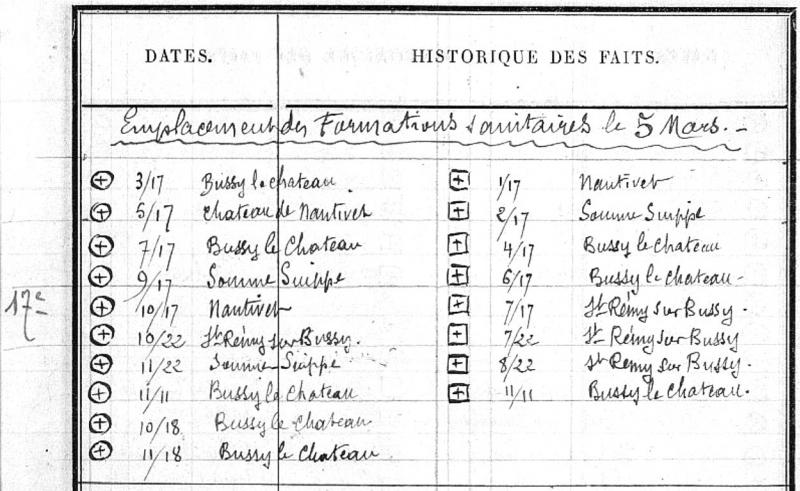 DATES. HISTORIQUE DES FAITS.
Emplacement des Formations sanitaires le 5 Mars. -
3/17 Bussy le chateau 1/17 Nantivet
5/17 chateau de Nantivet 2/17 Somme Suippe
7/17 Bussy le Chateau 4/17 Bussy le chateau
9/17 Somme Suippe 6/17 Bussy le chateau -
17e 10/17 Nantivet 7/17 St Rémy sur Bussy.
10/22 St Rémy sur Bussy. 7/22 St Rémy sur Bussy
11/22 Somme Suippe 8/22 St Remy sur Bussy.
11/11 Bussy le Chateau 11/11 Bussy le Chateau.
10/18 Bussy le Chateau
11/18 Bussy le Chateau